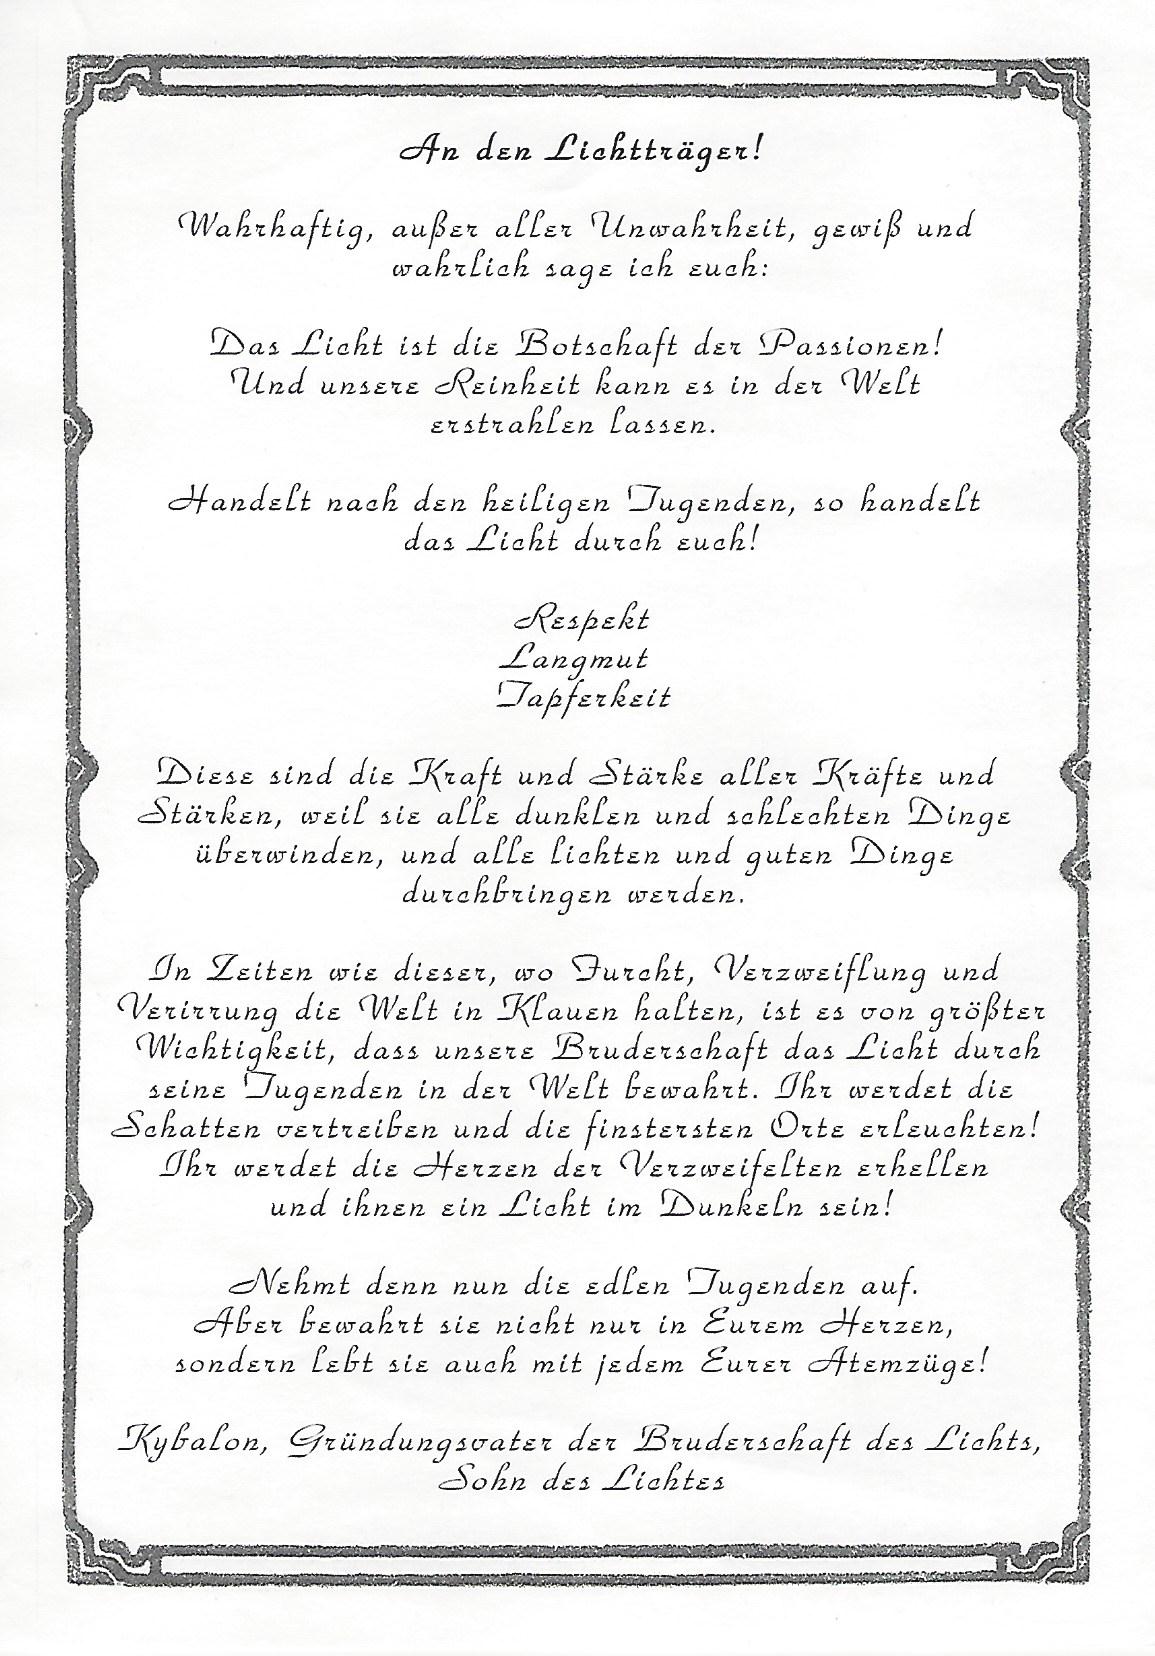 An den Lichtträger!
Wahrhaftig, außer aller Unwahrheit, gewiß und
wahrlich sage ich euch:
Das Licht ist die Botschaft der Passionen!
Und unsere Reinheit kann es in der Welt
erstrahlen lassen.
Handelt nach den heiligen Tugenden, so handelt
das Licht durch euch!
Respekt
Langmut
Tapferkeit
Diese sind die Kraft und Stärke aller Kräfte und
Stärken, weil sie alle dunklen und schlechten Dinge
überwinden, und alle lichten und guten Dinge
durchbringen werden.
In Zeiten wie dieser, wo Furcht, Verzweiflung und
Verirrung die Welt in Klauen halten, ist es von größter
Wichtigkeit, dass unsere Bruderschaft das Licht durch
seine Tugenden in der Welt bewahrt. Ihr werdet die
Schatten vertreiben und die finstersten Orte erleuchten!
Ihr werdet die Herzen der Verzweifelten erhellen
und ihnen ein Licht im Dunkeln sein!
Nehmt denn nun die edlen Tugenden auf.
Aber bewahrt sie nicht nur in Eurem Herzen,
sondern lebt sie auch mit jedem Eurer Atemzüge!
Kybalon, Gründungsvater der Bruderschaft des Lichts,
Sohn des Lichtes